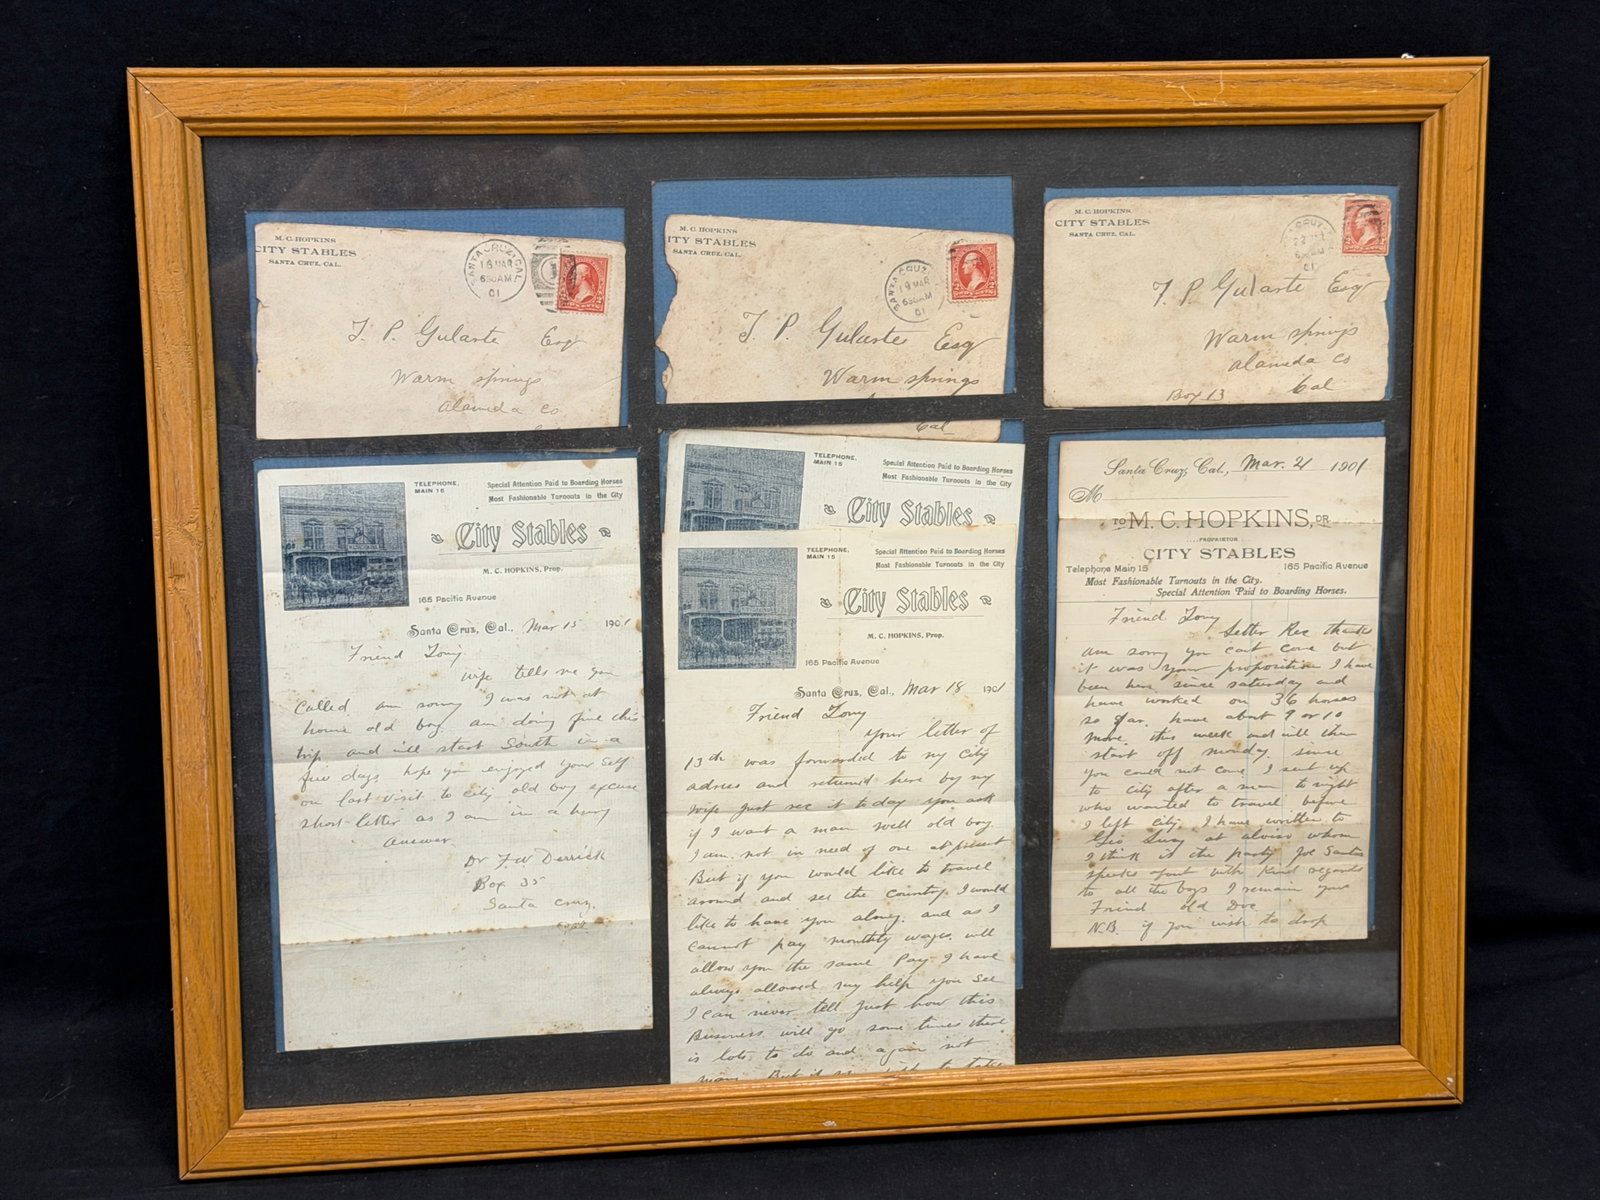 M. C. HOPKINS
CITY STABLES
SANTA CRUZ, CAL.
SANTA CRUZ, CAL.
16 MAR
630AM
01
T. P. Gularte Esq
Warm springs
Alameda Co
M. C. HOPKINS
ITY STABLES
SANTA CRUZ, CAL.
SANTA CRUZ
19 MAR
630AM
01
T. P. Gularte Esq
Warm springs
Cal
M. C. HOPKINS
CITY STABLES
SANTA CRUZ, CAL.
CRUZ
22
630AM
01
T. P. Gularte Esq
Warm springs
Alameda Co
Cal
Box 13
TELEPHONE,
MAIN 15
Special Attention Paid to Boarding Horses
Most Fashionable Turnouts in the City
City Stables
M. C. HOPKINS, Prop.
165 Pacific Avenue
Santa Cruz, Cal., Mar 15 1901
Friend Tony
wife tells me you
called am sorry I was not at
home old boy am doing fine this
trip and will start South in a
few days hope you enjoyed your self
on last visit to city old boy excuse
short letter as I am in a hurry
answer
Dr F. W. Derrick
Box 35
Santa Cruz.
Cal
TELEPHONE,
MAIN 15
Special Attention Paid to Boarding Horses
Most Fashionable Turnouts in the City
City Stables
TELEPHONE,
MAIN 15
Special Attention Paid to Boarding Horses
Most Fashionable Turnouts in the City
City Stables
M. C. HOPKINS, Prop.
165 Pacific Avenue
Santa Cruz, Cal., Mar 18 1901
Friend Tony
your letter of
13th was forwarded to my city
adress and returned here by my
wife just rec it to day you ask
if I want a man well old boy
I am not in need of one at present
But if you would like to travel
around and see the country I would
like to have you along. and as I
cannot pay monthly wages. will
allow you the same Pay I have
always allowed my help you see
I can never tell just how this
Business will go some times there
is lots to do and again not
many. But if
Santa Cruz, Cal., Mar. 21 1901
M
TO M. C. HOPKINS, DR.
....PROPRIETOR
CITY STABLES
Telephone Main 15 165 Pacific Avenue
Most Fashionable Turnouts in the City.
Special Attention Paid to Boarding Horses.
Friend Tony
Letter Rec thanks
am sorry you cant come but
it was your proposition I have
been here since saturday and
have worked on 36 horses
so far. have about 9 or 10
more this week and will then
start off monday. since
you could not come I sent up
to city after a man to night
who wanted to travel before
I left city. I have written to
Geo at alviso whom
I think is the party Joe Santos
speaks of with Kind regards
to all the boys I remain your
Friend old Doc
N.B. if you wish to drop